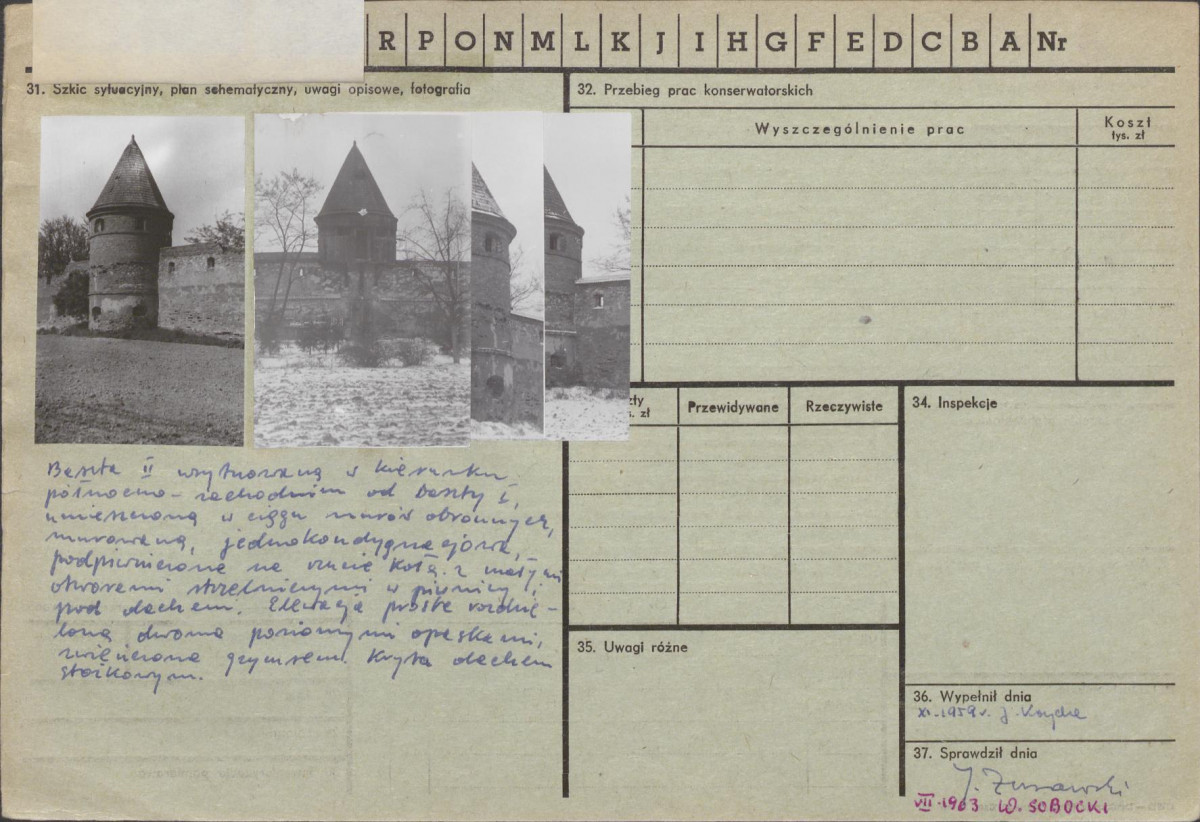 R P O N M L K J I H G F E D C B A Nr
31. Szkic sytuacyjny, plan schematyczny, uwagi opisowe, fotografia
32. Przebieg prac konserwatorskich
Wyszczególnienie prac
Koszt
tys. zł
Baszta II usytuowana w kierunku
północno-zachodnim od baszty I,
umieszczona w ciągu murów obronnych,
murowana, jednokondygnacyjowa,
podpiwniczona na rzucie koła z małymi
otworami strzelniczymi w piwnicy i
pod dachem. Elewacja prosta rozdzie-
lona dwoma poziomymi opaskami,
zwieńczona gzymsem. Kryta dachem
stożkowym.
zty
s. zł
Przewidywane
Rzeczywiste
34. Inspekcje
35. Uwagi różne
36. Wypełnił dnia
XI.1959 r. J.
37. Sprawdził dnia
J. Żurawski
VII.1963 W. SOBOCKI